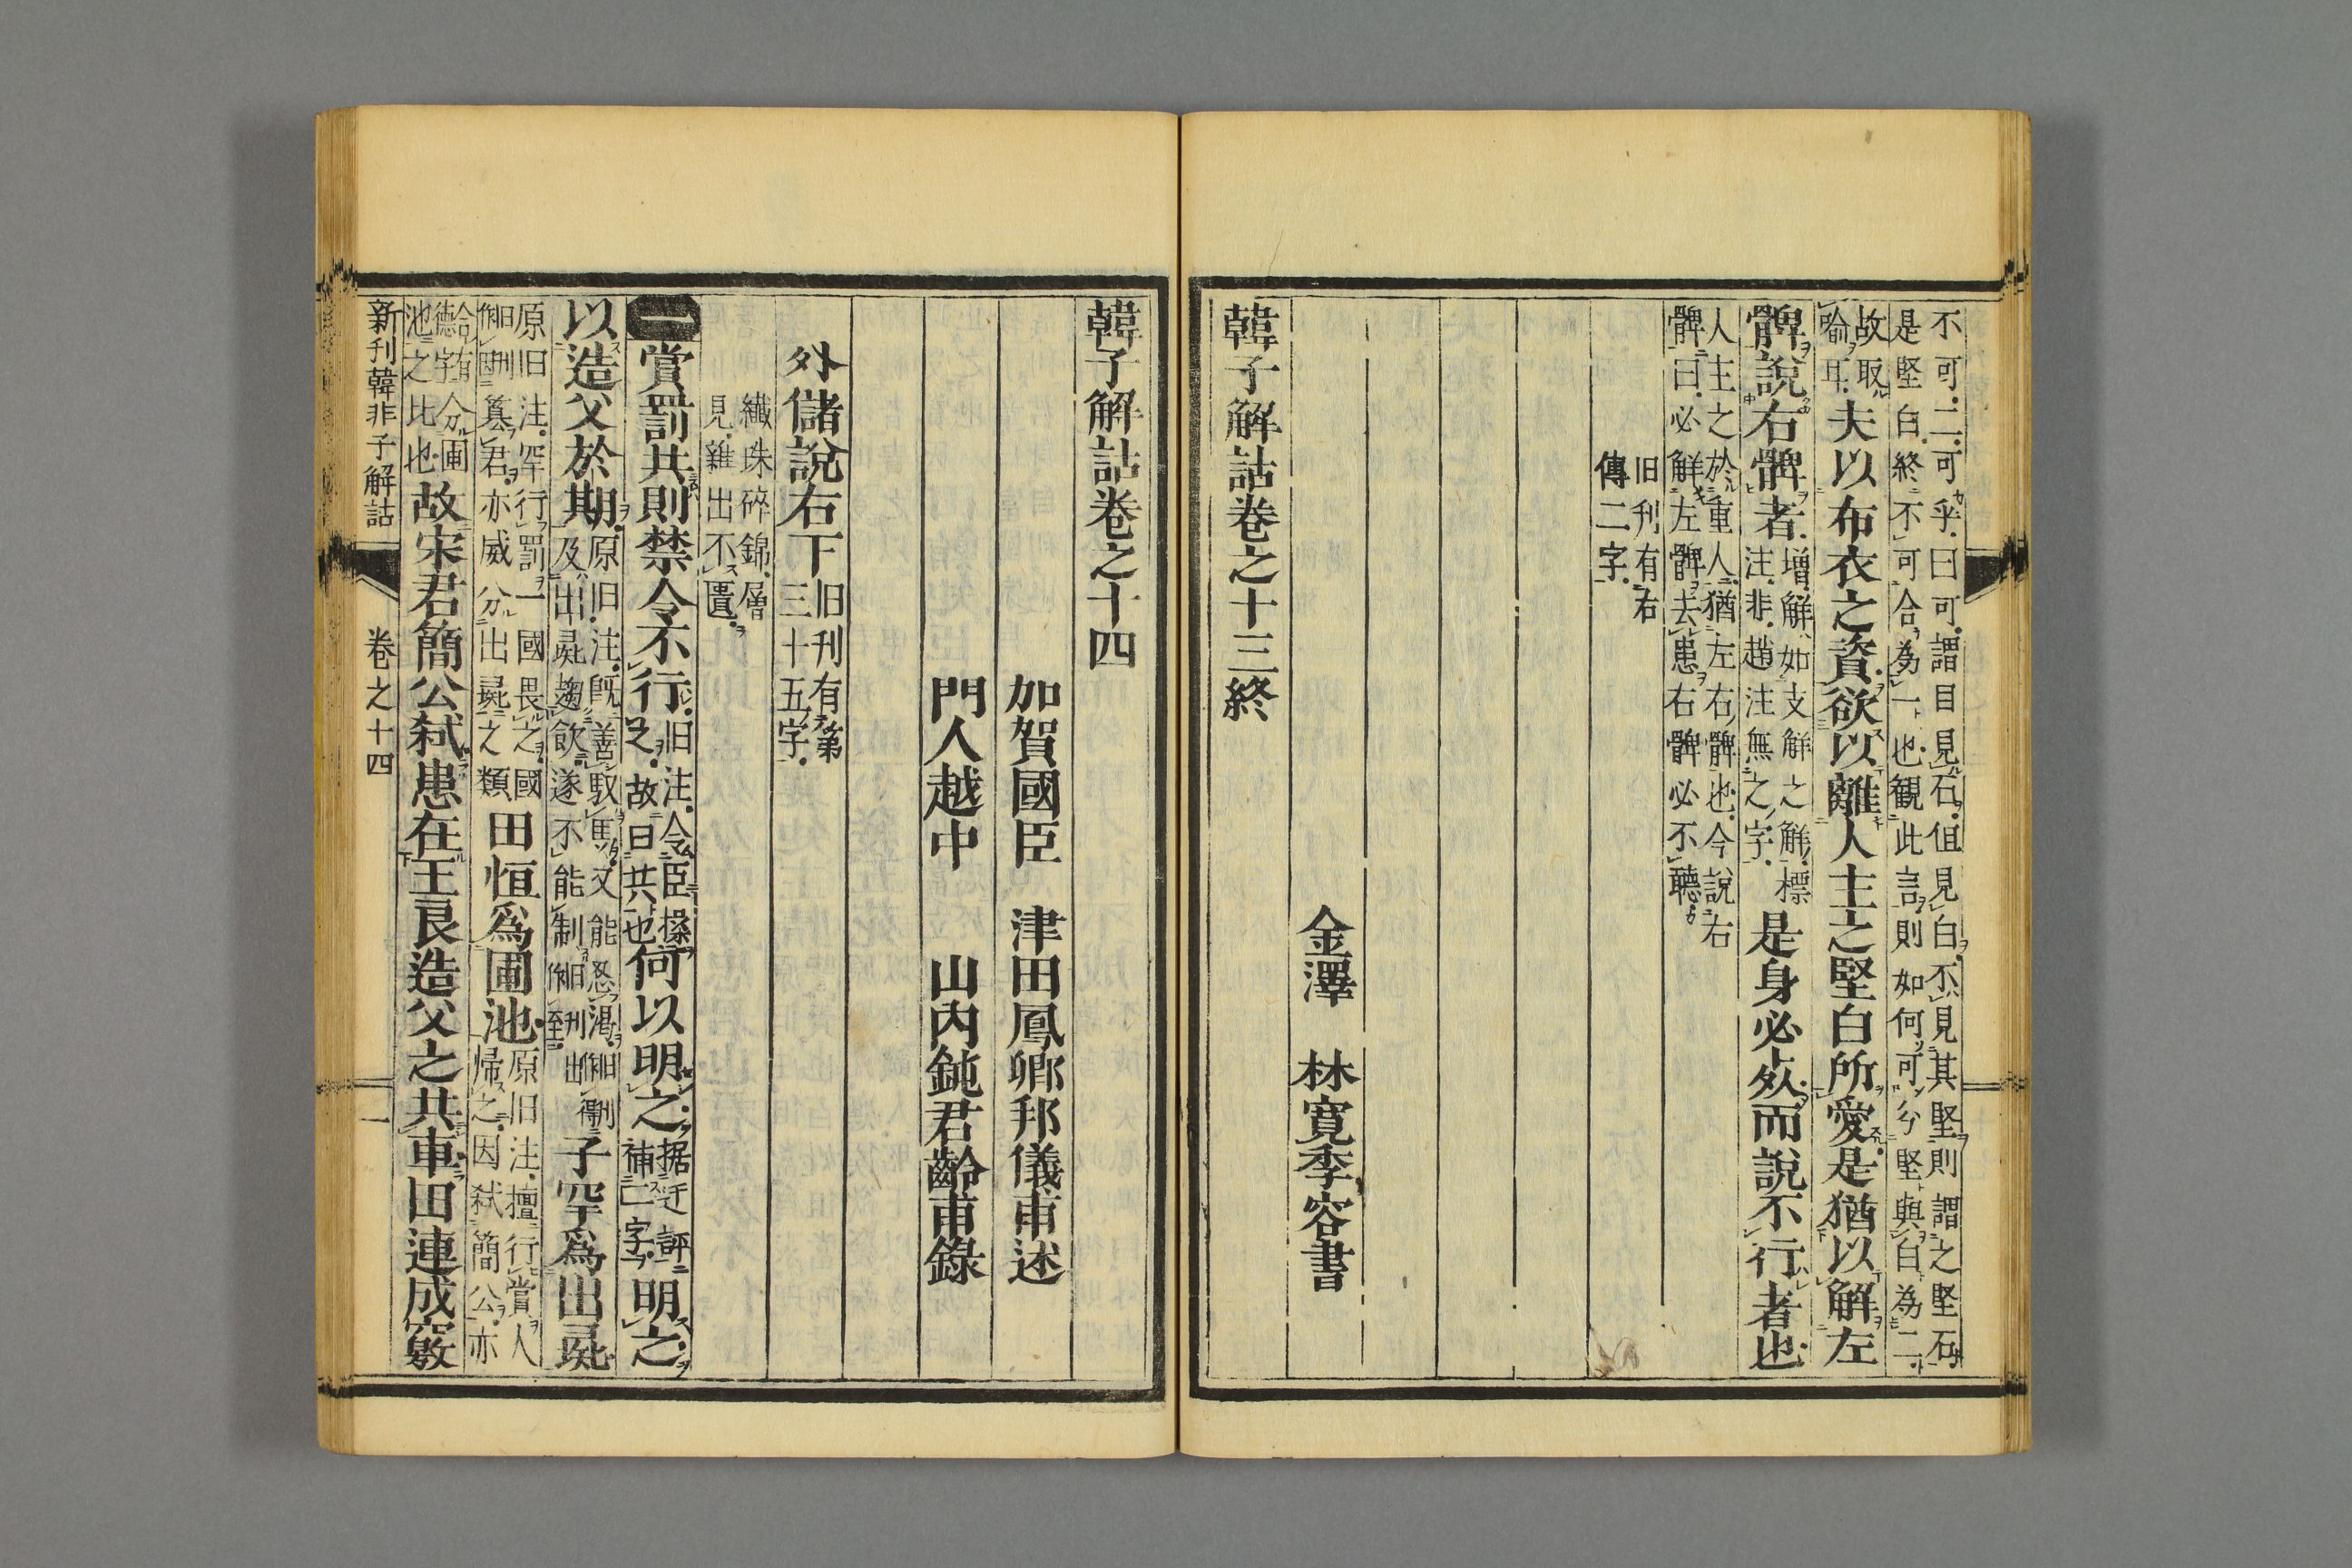 不可二可乎曰可謂目見石但見白不見其堅則謂之堅石
是堅白終不可合為一也観此言則如何可分堅與白為二
故取
喻耳
夫以布衣之資欲以離人主之堅白所愛是猶以解左
髀說右髀者
增解如支解之解標
注非趙注無之字
是身必死而說不行者也
人主之於重人猶左右髀也今說右
髀曰必解左髀去患右髀必不聽
旧刋有右
傳二字
金澤 林寛季容書
韓子解詁卷之十三終
韓子解詁卷之十四
加賀國臣 津田鳳卿邦儀甫述
門人越中 山内鈍君齡甫錄
外儲說右下
旧刋有第
三十五字
纖珠碎錦層
見雜出不匱
一賞罰共則禁令不行
旧注令臣操
之故曰共也
何以明之
据迂評
補二字
明之
以造父於期
原旧注既善馭馬又能忍渴旧刋作得
及出彘趨飲遂不能制旧刋出作至
子罕爲出彘
原旧注罕行罰一國畏之國
旧刪作因簒君亦威分出彘之類
田恒爲圃池
原旧注擅行賞人
帰之因弑簡公亦
德字分圃
池之比也
故宋君簡公弑患在王良造父之共車田連成竅
新刋韓非子解詁 卷之十四 一